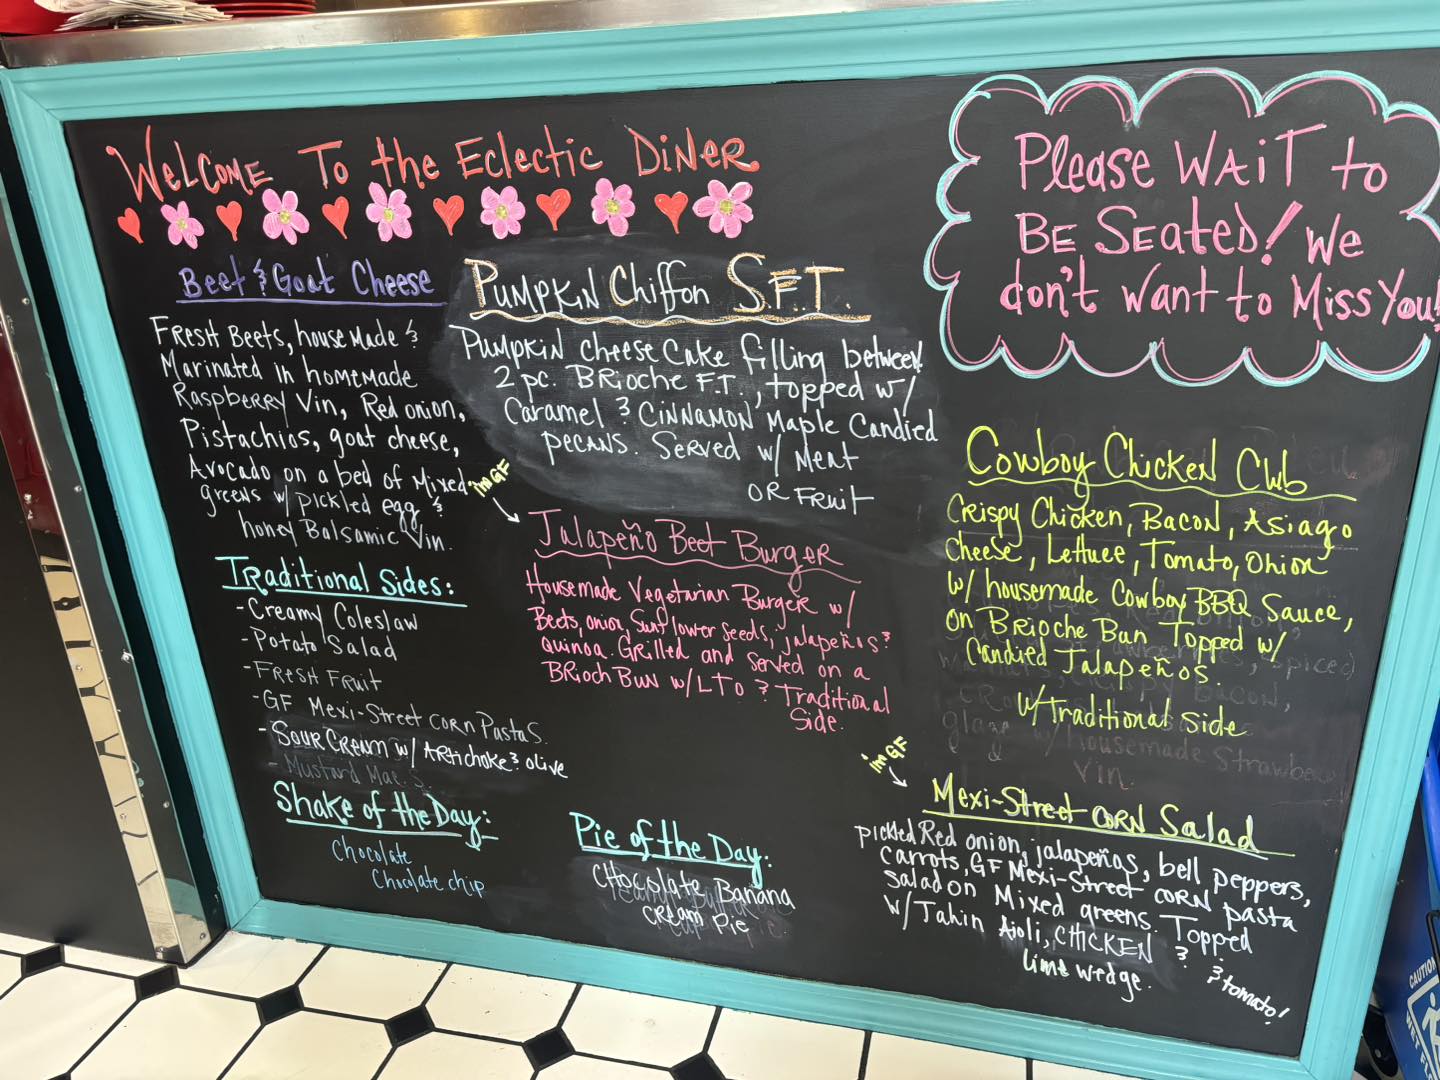 Welcome To the Eclectic Diner
Please Wait to
Be Seated! We
don't want to Miss You!
Beet & Goat Cheese
Fresh Beets, house Made &
Marinated in homemade
Raspberry Vin, Red onion,
Pistachios, goat cheese,
Avocado on a bed of Mixed
greens w/ pickled egg &
honey Balsamic Vin.
Pumpkin Chiffon S.F.T.
Pumpkin Cheese Cake filling between
2 pc. Brioche F.T., topped w/
Caramel & Cinnamon Maple Candied
pecans. Served w/ Meat
OR Fruit
Cowboy Chicken Club
Crispy Chicken, Bacon, Asiago
Cheese, Lettuce, Tomato, Onion
w/ housemade Cowboy BBQ Sauce,
on Brioche Bun Topped w/
Candied Jalapeños.
w/Traditional side
I'm GF
Jalapeño Beet Burger
Housemade Vegetarian Burger w/
Beets, onion, Sunflower Seeds, jalapeños &
Quinoa. Grilled and served on a
Brioch Bun w/ LTO & Traditional
Side.
Traditional Sides:
- Creamy Coleslaw
- Potato Salad
- Fresh Fruit
- GF Mexi-Street corn Pasta S.
- Sour Cream w/ Artichoke & olive
- Mustard Mac. S.
Shake of the Day:
Chocolate
Chocolate chip
Pie of the Day:
Chocolate Banana
Cream Pie
I'm GF
Mexi-Street corn Salad
pickled Red onion, jalapeños, bell peppers,
carrots, GF Mexi-Street corn pasta
salad on Mixed greens. Topped
w/ Tahin Aioli, CHICKEN &
lime wedge.
& tomato!
w/ housemade Strawbe
Vin.
CAUTION
WET FL